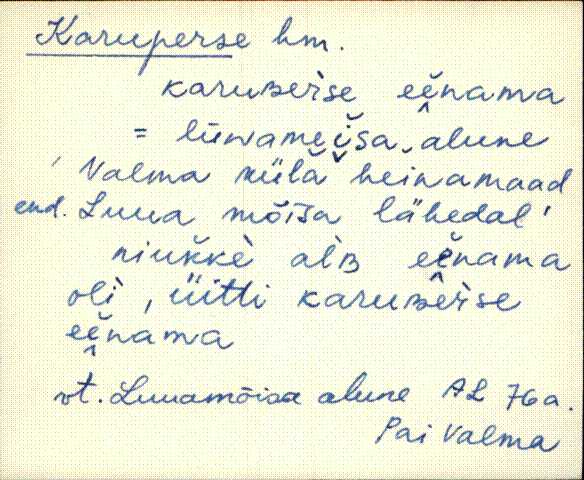 Karuperse hm.
karuʙeìse eěnama
= lūwameiša alune
' Valma külä heinamaad
end. Luua mõisa lähedal'
niukkè alìʙ eěnama
olì, üitti karuʙeìse
eěnama
vt. Luuamõisa alune AL 76a.
Pai Valma